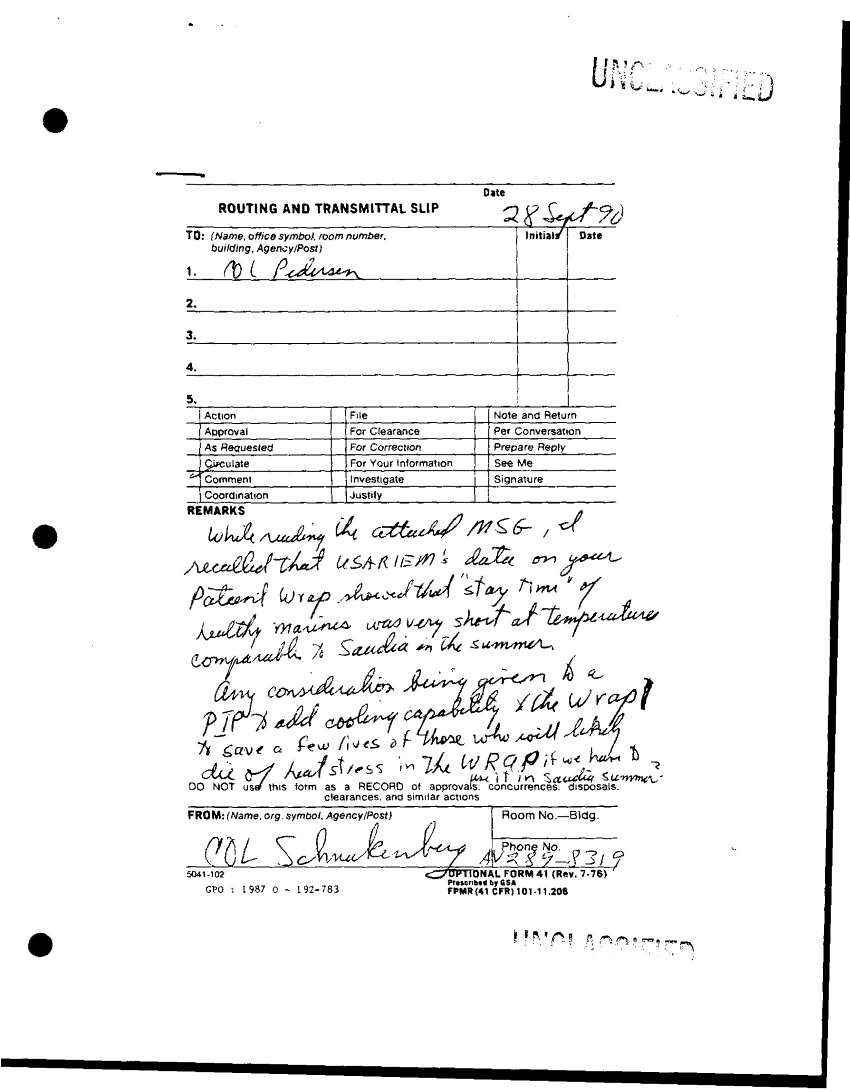 UNCLASSIFIED
Date
ROUTING AND TRANSMITTAL SLIP
28 Sept 90
TO: (Name, office symbol, room number,
building, Agency/Post)
Initials
Date
1. COL Pedersen
2.
3.
4.
5.
Action File Note and Return
Approval For Clearance Per Conversation
As Requested For Correction Prepare Reply
Circulate For Your Information See Me
Comment Investigate Signature
Coordination Justify
REMARKS
While reading the attached MSG, I
recalled that USARIEM's data on your
Patient Wrap showed that "stay time" of
healthy marines was very short at temperatures
comparable to Saudia in the summer.
Any consideration being given to a
PIP to add cooling capability to the Wrap
to save a few lives of those who will likely
die of heat stress in the WRAP if we have to
use it in Saudia summer?
DO NOT use this form as a RECORD of approvals, concurrences, disposals,
clearances, and similar actions
FROM: (Name, org. symbol, Agency/Post)
Room No.—Bldg.
COL Schnakenberg
Phone No.
AV 289-8319
5041-102
OPTIONAL FORM 41 (Rev. 7-76)
Prescribed by GSA
GPO : 1987 O - 192-783
FPMR (41 CFR) 101-11.206
UNCLASSIFIED